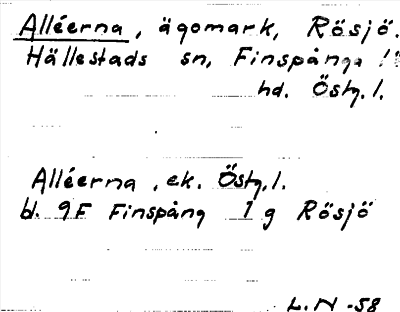 Alléerna, ägomark, Rösjö.
Hällestads sn, Finspånga l:s
hd. Östg. l.
Alléerna, ek. Östg. l.
bl. 9F Finspång 1 g Rösjö
L.N -58